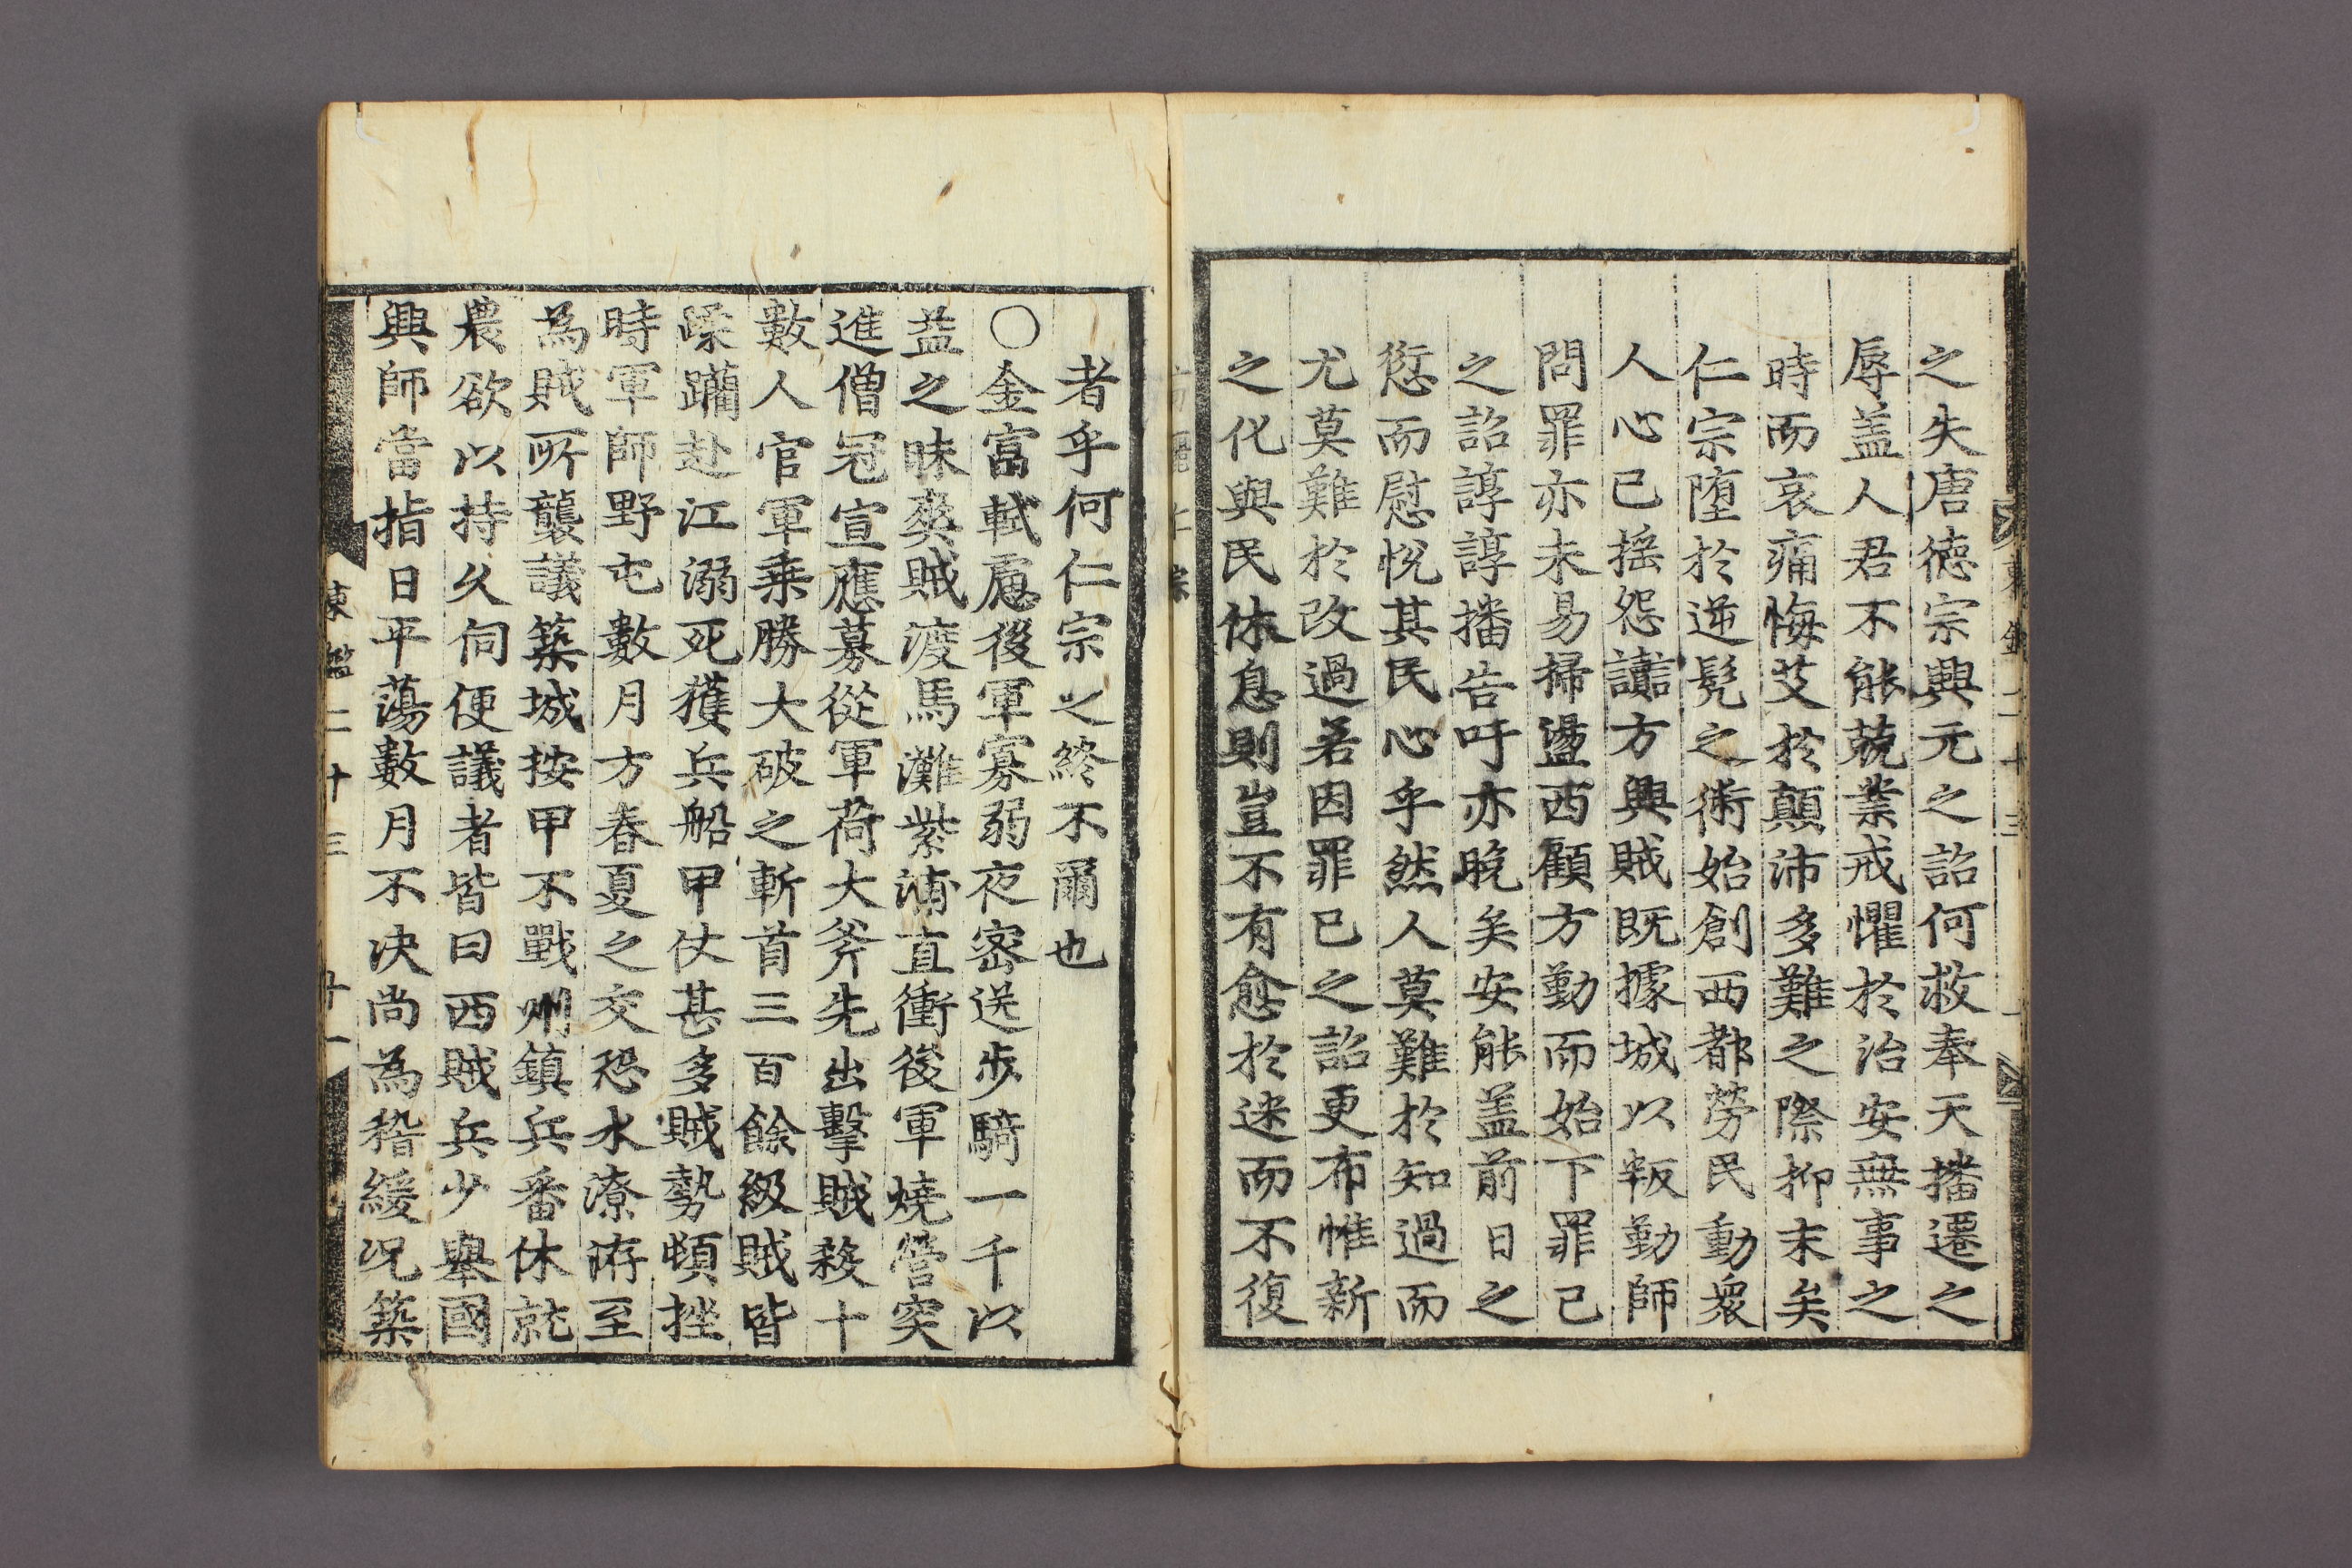 之失唐德宗興元之詔何救奉天播遷之
辱盖人君不能兢業戒懼於治安無事之
時而哀痛悔艾於顛沛多難之際抑末矣
仁宗墮於逆髡之術始創西都勞民動衆
人心已揺怨讟方興賊既據城以叛勤師
問罪亦未易掃盪西顧方勤而始下罪己
之詔諄諄播告吁亦晩矣安能盖前日之
愆而慰悅其民心乎然人莫難於知過而
尤莫難於改過若因罪已之詔更布惟新
之化與民休息則豈不有愈於迷而不復
者乎何仁宗之終不爾也
○金富軾慮後軍寡弱夜密送步騎一千以
益之昧爽賊渡馬灘紫浦直衝後軍燒營突
進僧冠宣應募從軍荷大斧先出擊賊殺十
數人官軍乗勝大破之斬首三百餘級賊皆
蹂躪赴江溺死獲兵船甲仗甚多賊勢頓挫
時軍師野屯數月方春夏之交恐水潦洊至
為賊所襲議築城按甲不戰州鎮兵番休就
農欲以持久伺便議者皆曰西賊兵少舉國
興師當指日平蕩數月不决尚為稽緩况築
東鑑二十三 廿一